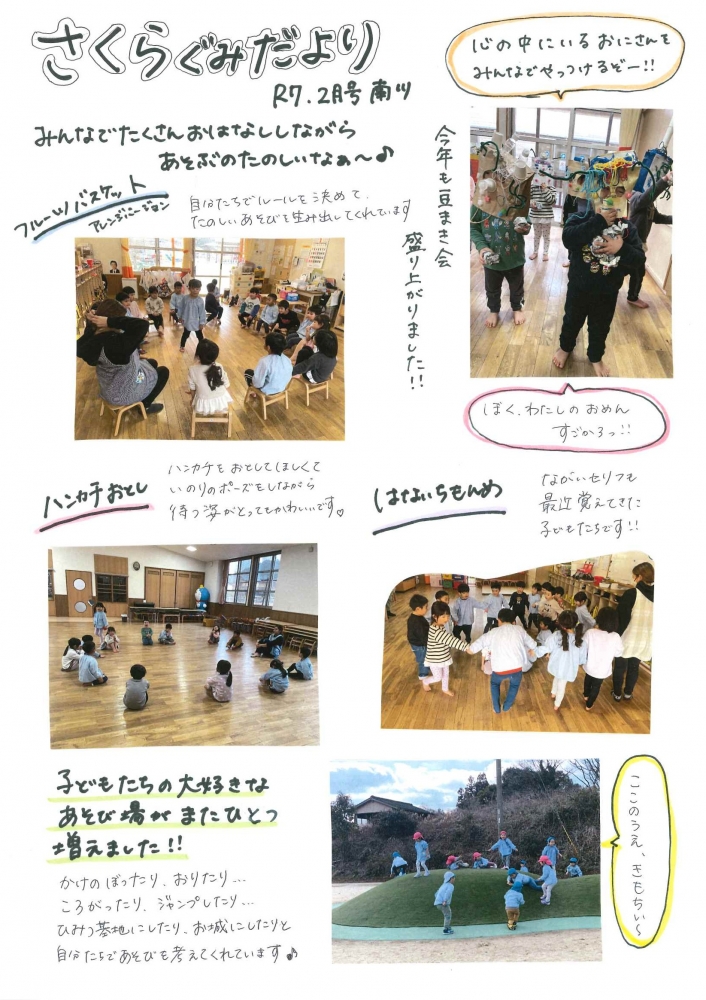 さくらぐみだより
R7.2月号 南川
みんなでたくさんおはなししながら
あそぶのたのしいなぁ〜♪
フルーツバスケット
アレンジバージョン
自分たちでルールを決めて、
たのしいあそびを生み出してくれています
心の中にいるおにさんを
みんなでやっつけるぞー!!
今年も豆まき会
盛り上がりました!!
ぼく、わたしのおめん
すごかろっ!!
ハンカチおとし
ハンカチをおとしてほしくて
いのりのポーズをしながら
待つ姿がとってもかわいいです♡
はないちもんめ
ながいセリフも
最近覚えてきた
子どもたちです!!
子どもたちの大好きな
あそび場がまたひとつ
増えました!!
かけのぼったり、おりたり…
ころがったり、ジャンプしたり…
ひみつ基地にしたり、お城にしたりと
自分たちであそびを考えてくれています♪
ここのうえ、きもちぃ〜